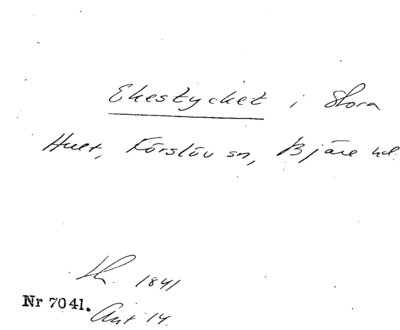 Ekestycket i Stora
Hult, Förslöv sn, Bjäre hd.
Lh. 1841
Nr 7041.
Akt 14.